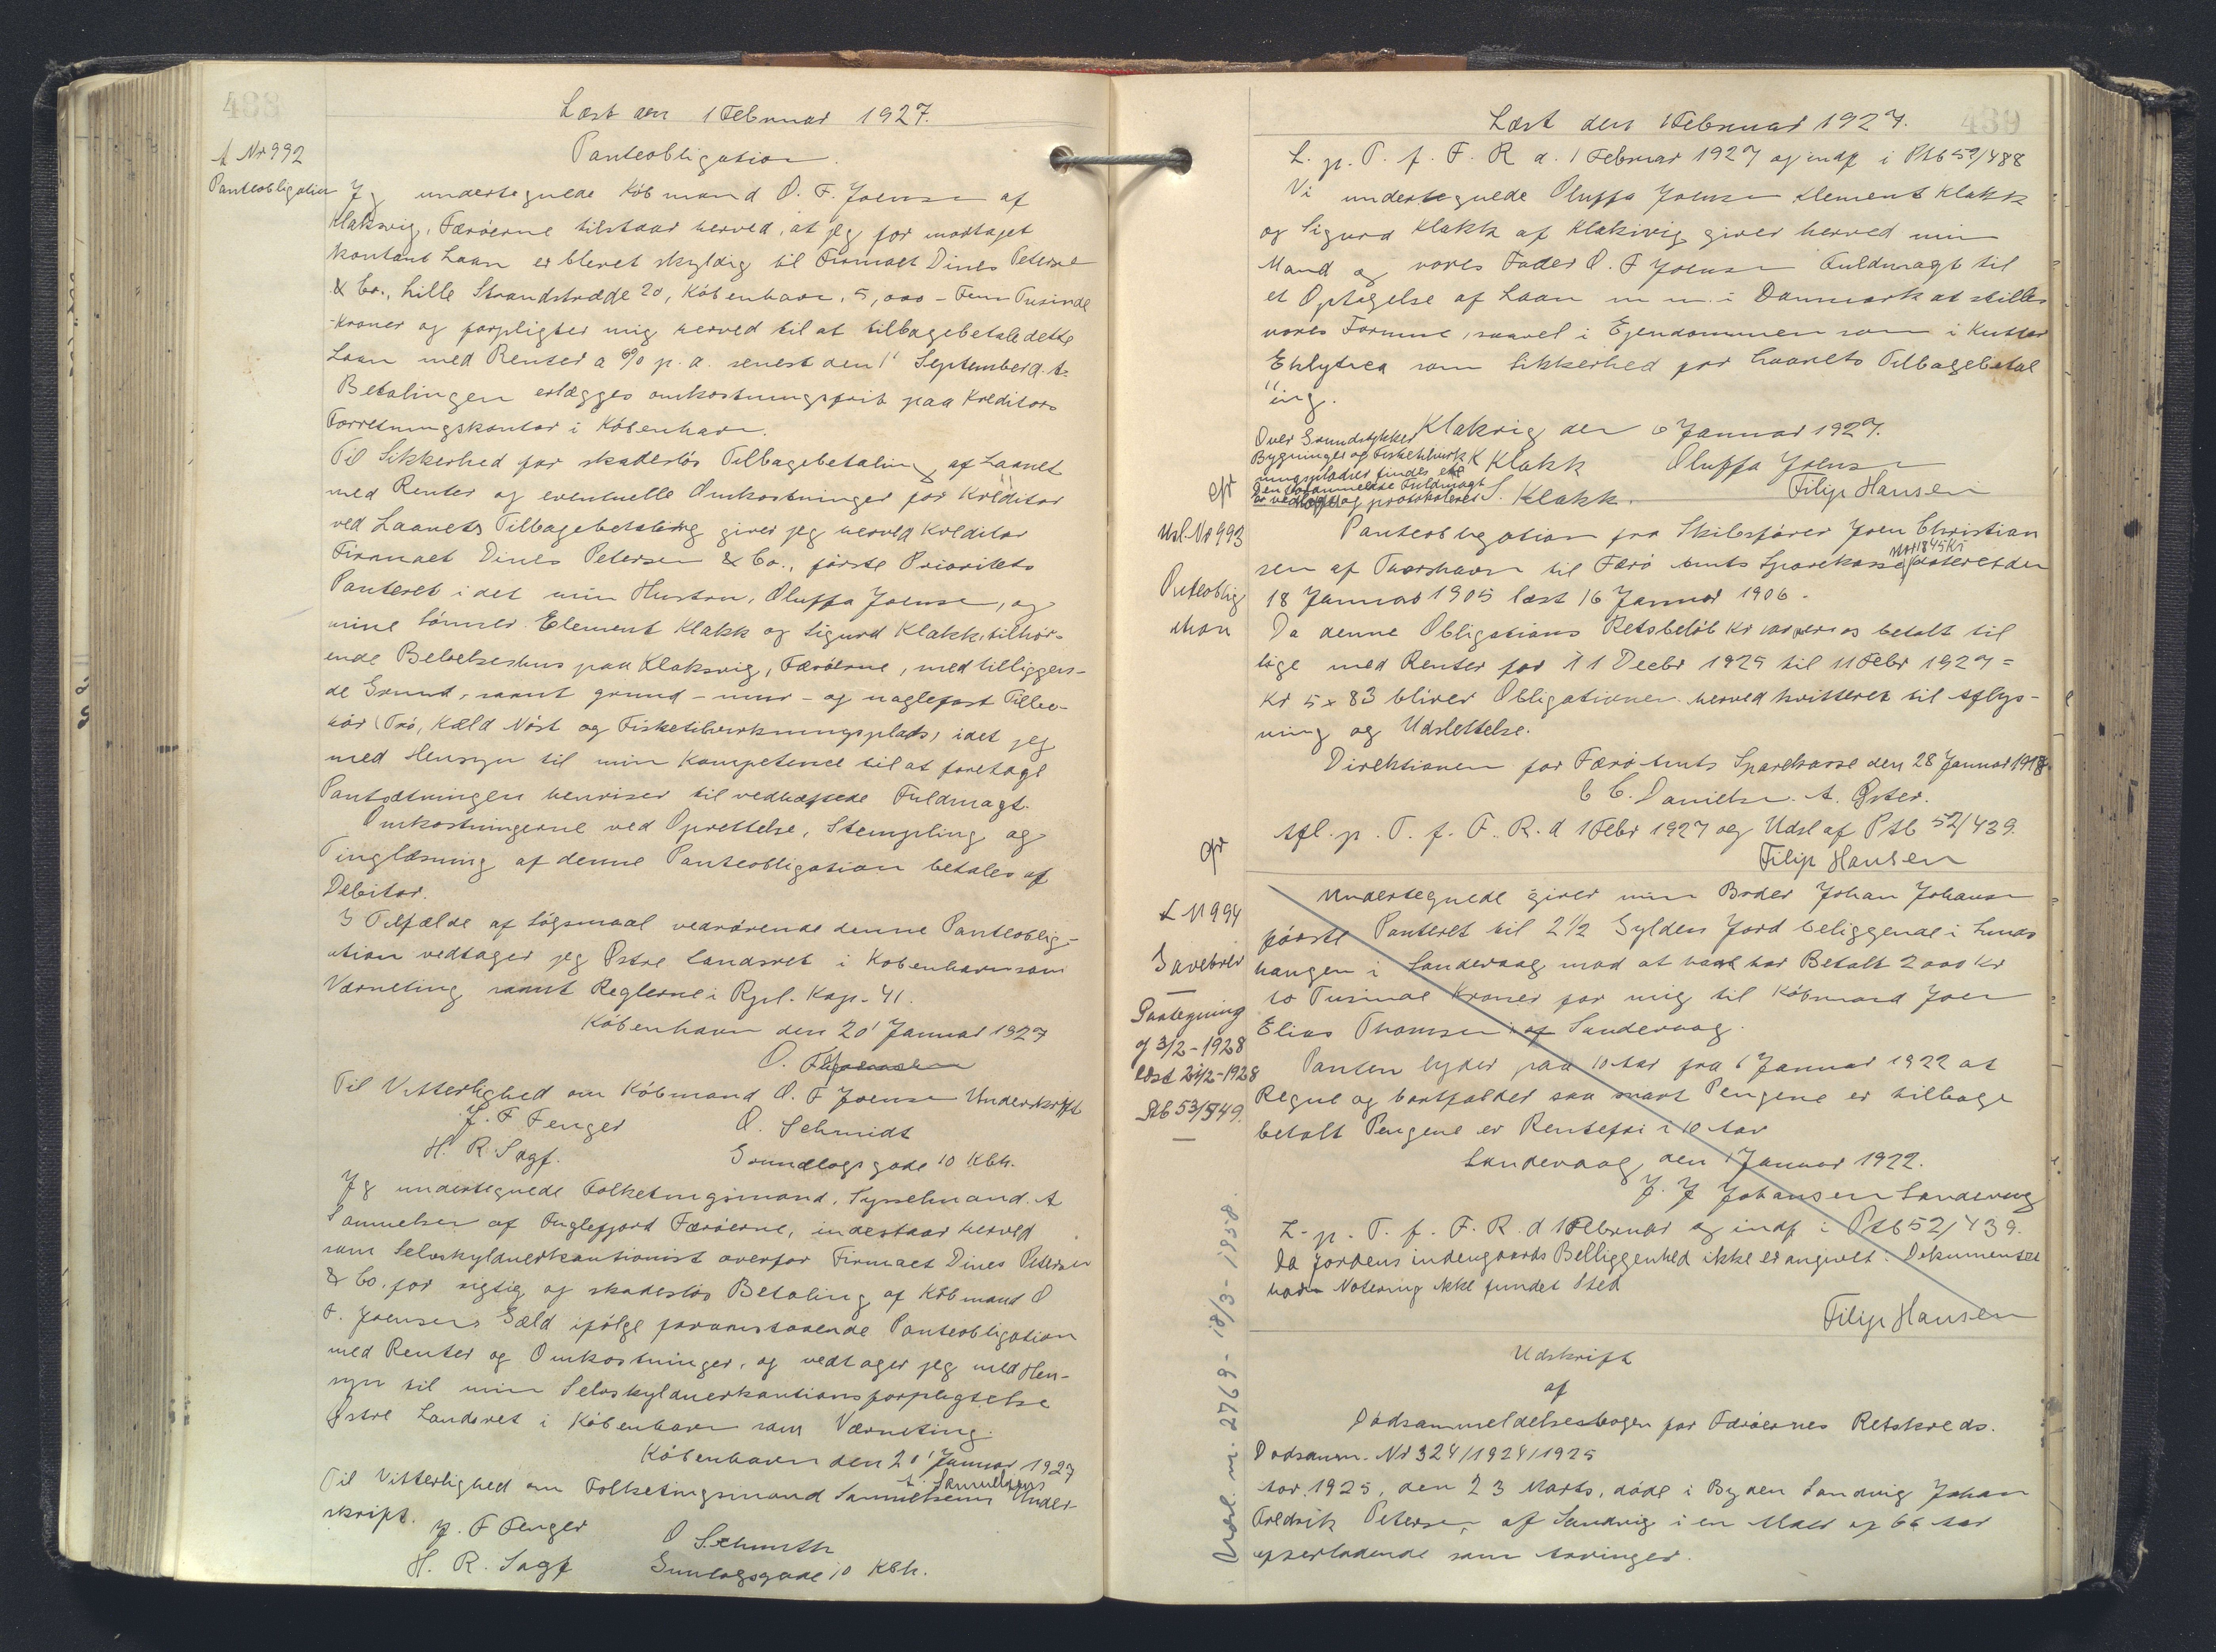 488
Læst den 1 Februar 1927.
A Nr 992
Panteobligation
Panteobligation.
Jeg undertegnede Købmand O. F. Joensen af
Klaksvig, Færøerne tilstaar herved, at jeg for modtaget
kontant Laan er blevet skyldig til Firmaet Dines Petersen
& Co., Lille Strandstræde 20, København, 5,000 - Fem Tusinde
-Kroner og forpligter mig herved til at tilbagebetale dette
Laan med Renter a 6% p. a. senest den 1' September d. A.
Betalingen erlægges omkostningsfrit paa Kreditors
Forretningskontor i København.
Til Sikkerhed for skadesløs Tilbagebetaling af Laanet
med Renter og eventuelle Omkostninger for Kreditor
ved Laanets Tilbagebetaling giver jeg herved Kreditor
Firmaet Dines Petersen & Co., første Prioritets
Panteret i det min Hustru, Oluffa Joensen, og
mine Sønner Element Klakk og Sigurd Klakk, tilhør-
ende Beboelseshus paa Klaksvig, Færøerne, med tilliggen-
de Grund, samt grund- mur- og naglefast Tilbe-
hør (Trø, Kæld Nøst og Fisketilvirkningsplads, idet jeg
med Hensyn til min Kompetence til at foretage
Pantsætningen henviser til vedhæftede Fuldmagt.
Omkostningerne ved Oprettelse, Stempling og
Tinglæsning af denne Panteobligation betales af
Debitor.
I Tilfælde af Søgsmaal vedrørende denne Panteoblig-
ation vedtager jeg Østre Landsret i København som
Værneting samt Reglerne i Rpl. Kap. 41.
København den 20' Januar 1927
O. F. Joensen
Til Vitterlighed om Købmand O. F Joensen Underskrift
J. F Fenger O. Schmidt
H. R. Sagf. Grundlogsgade 10 Kbh.
Jeg undertegnede Folketingsmand, Sysselmand A
Samuelsen af Fuglefjord Færøerne, indestaar herved
som Selvskyldnerkautionist overfor Firmaet Dines Petersen
& Co. for rigtig og skadesløs Betaling af Købmand O
F. Joensens Gæld ifølge foranstaaende Panteobligation
med Renter og Omkostninger, og vedtager jeg med Hen-
syn til min Selvskyldnerkautionsforpligtelse
Østre Landsret i København som Værneting.
København den 20' Januar 1927
A. Samuelsen
Til Vitterlighed om Folketingsmand Samuelsens Under-
skrift.
J. F Fenger O Schmith
H. R. Sagf Gunlogsgade 10 Kbh.
439
Læst den 1 Februar 1927.
L. p. T. f. F. R d. 1 Februar 1927 og indf i Ptb 52/488
Vi undertegnede Oluffa Joensen Element Klakk
og Sigurd Klakk af Klaksvig giver herved min
Mand og vores Fader O. F Joensen Fuldmagt til
et Optagelse af Laan m m. i Danmark at stille
vores Formue, saavel i Ejendommen som i Kutter
Eklytica som Sikkerhed for Laanets Tilbagebetal
ing.
Klaksvig den 6 Januar 1927.
Over Grundstykker
Bygninger og Fisketilvirk
ningspladser findes ele
Den foranmeldte Fuldmagt
er vedlagt og protokoleret
K Klakk Oluffa Joensen
S. Klakk. Filip Hansen
Usl. Nr 993
Panteoblig
ation
Panteobligation fra Skibsfører Joen Christian
sen af Thorshavn til Færø Amts Sparekasse stor 1845 Kr dateret den
18 Januar 1905 læst 16 Januar 1906.
Da denne Obligations Restbeløb Kr betalt til
lige med Renter for 11 Decbr 1925 til 11 Febr 1927 =
Kr 5 x 83 bliver Obligationen herved kvitteret til Aflys-
ning og Udslettelse.
Direktionen for Færø Amts Sparekasse den 28 Januar 1918
C C. Danielsen. A. Øster.
Afl. p. T. f. F. R. d 1 Febr 1927 og Udsl af Ptb 52/439.
Filip Hansen
L N 994
Gavebrev
Paategning
af 3/2-1928
læst 21/2-1928
Ptb 53/549.
Undertegnede giver min Broder Johan Johansen
første Panteret til 2 1/2 Gylden Jord beliggende i Lunds
haugen i Sandevaag mod at han har Betalt 2000 Kr
to Tusinde Kroner for mig til Købmand Joen
Elias Thomsen af Sandevaag.
Panten lyder paa 10 Aar fra 6 Januar 1922 at
Regne og bortfalder saa snart Pengene er tilbage
betalt Pengene er Rentefri i 10 Aar
Sandevaag den 1 Januar 1922.
J. J Johansen Sandevaag
L. p. T. f. F. R. d 1 Februar og indf i Ptb 52/439.
Da Jordens indengaards Beliggenhed ikke er angivet i Dokumentet
har Notering ikke fundet Sted
Filip Hansen
Udskrift
af
Dødsanmeldelsesbogen for Færøernes Retskreds.
Dødsanm. Nr 324/1924/1925
Aar 1925, den 23 Marts, døde i Bygden Sandvig Johan
Fredrik Petersen, af Sandvig i en Alder af 66 Aar
efterladende som Arvinger.
nr. 2769- 18/3-1958.